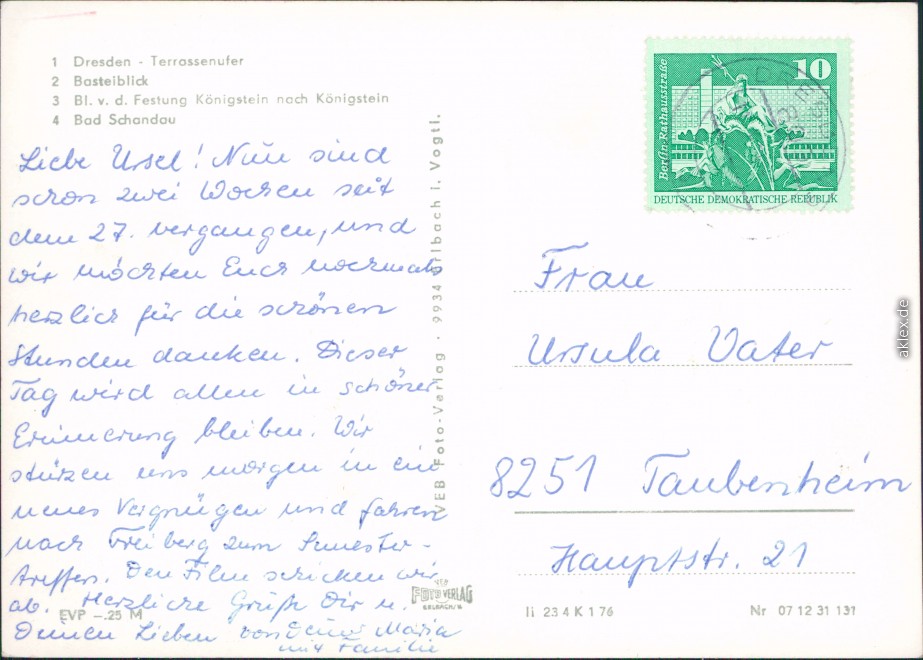 1 Dresden - Terrassenufer
2 Basteiblick
3 Bl. v. d. Festung Königstein nach Königstein
4 Bad Schandau
Liebe Ursel! Nun sind
schon zwei Wochen seit
dem 27. vergangen, und
wir möchten Euch nochmals
herzlich für die schönen
Stunden danken. Dieser
Tag wird allen in schöner
Erinnerung bleiben. Wir
stürzen uns morgen in ein
neues Vergnügen und fahren
nach Freiberg zum Semester-
treffen. Den Film schicken wir
ab. Herzliche Grüße Dir u.
Deinen Lieben von Deiner Maria
mit Familie
EVP -.25 M
VEB Foto-Verlag · 9934 Erlbach i. Vogtl.
FOTO VERLAG
ERLBACH/V.
Berlin-Rathausstraße
10
DEUTSCHE DEMOKRATISCHE REPUBLIK
Frau
Ursula Vater
8251 Taubenheim
Hauptstr. 21
li 23 4 K 1 76
Nr 07 12 31 131
aklex.de